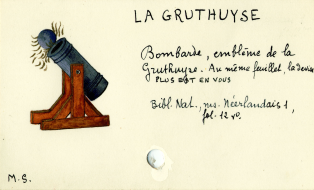 LA GRUTHUYSE
Bombarde, emblème de la
Gruthuyse. Au même feuillet, la devise
PLUS EST EN VOUS
Bibl. Nat., ms. Néerlandais 1,
fol. 12 vo.
M.S.